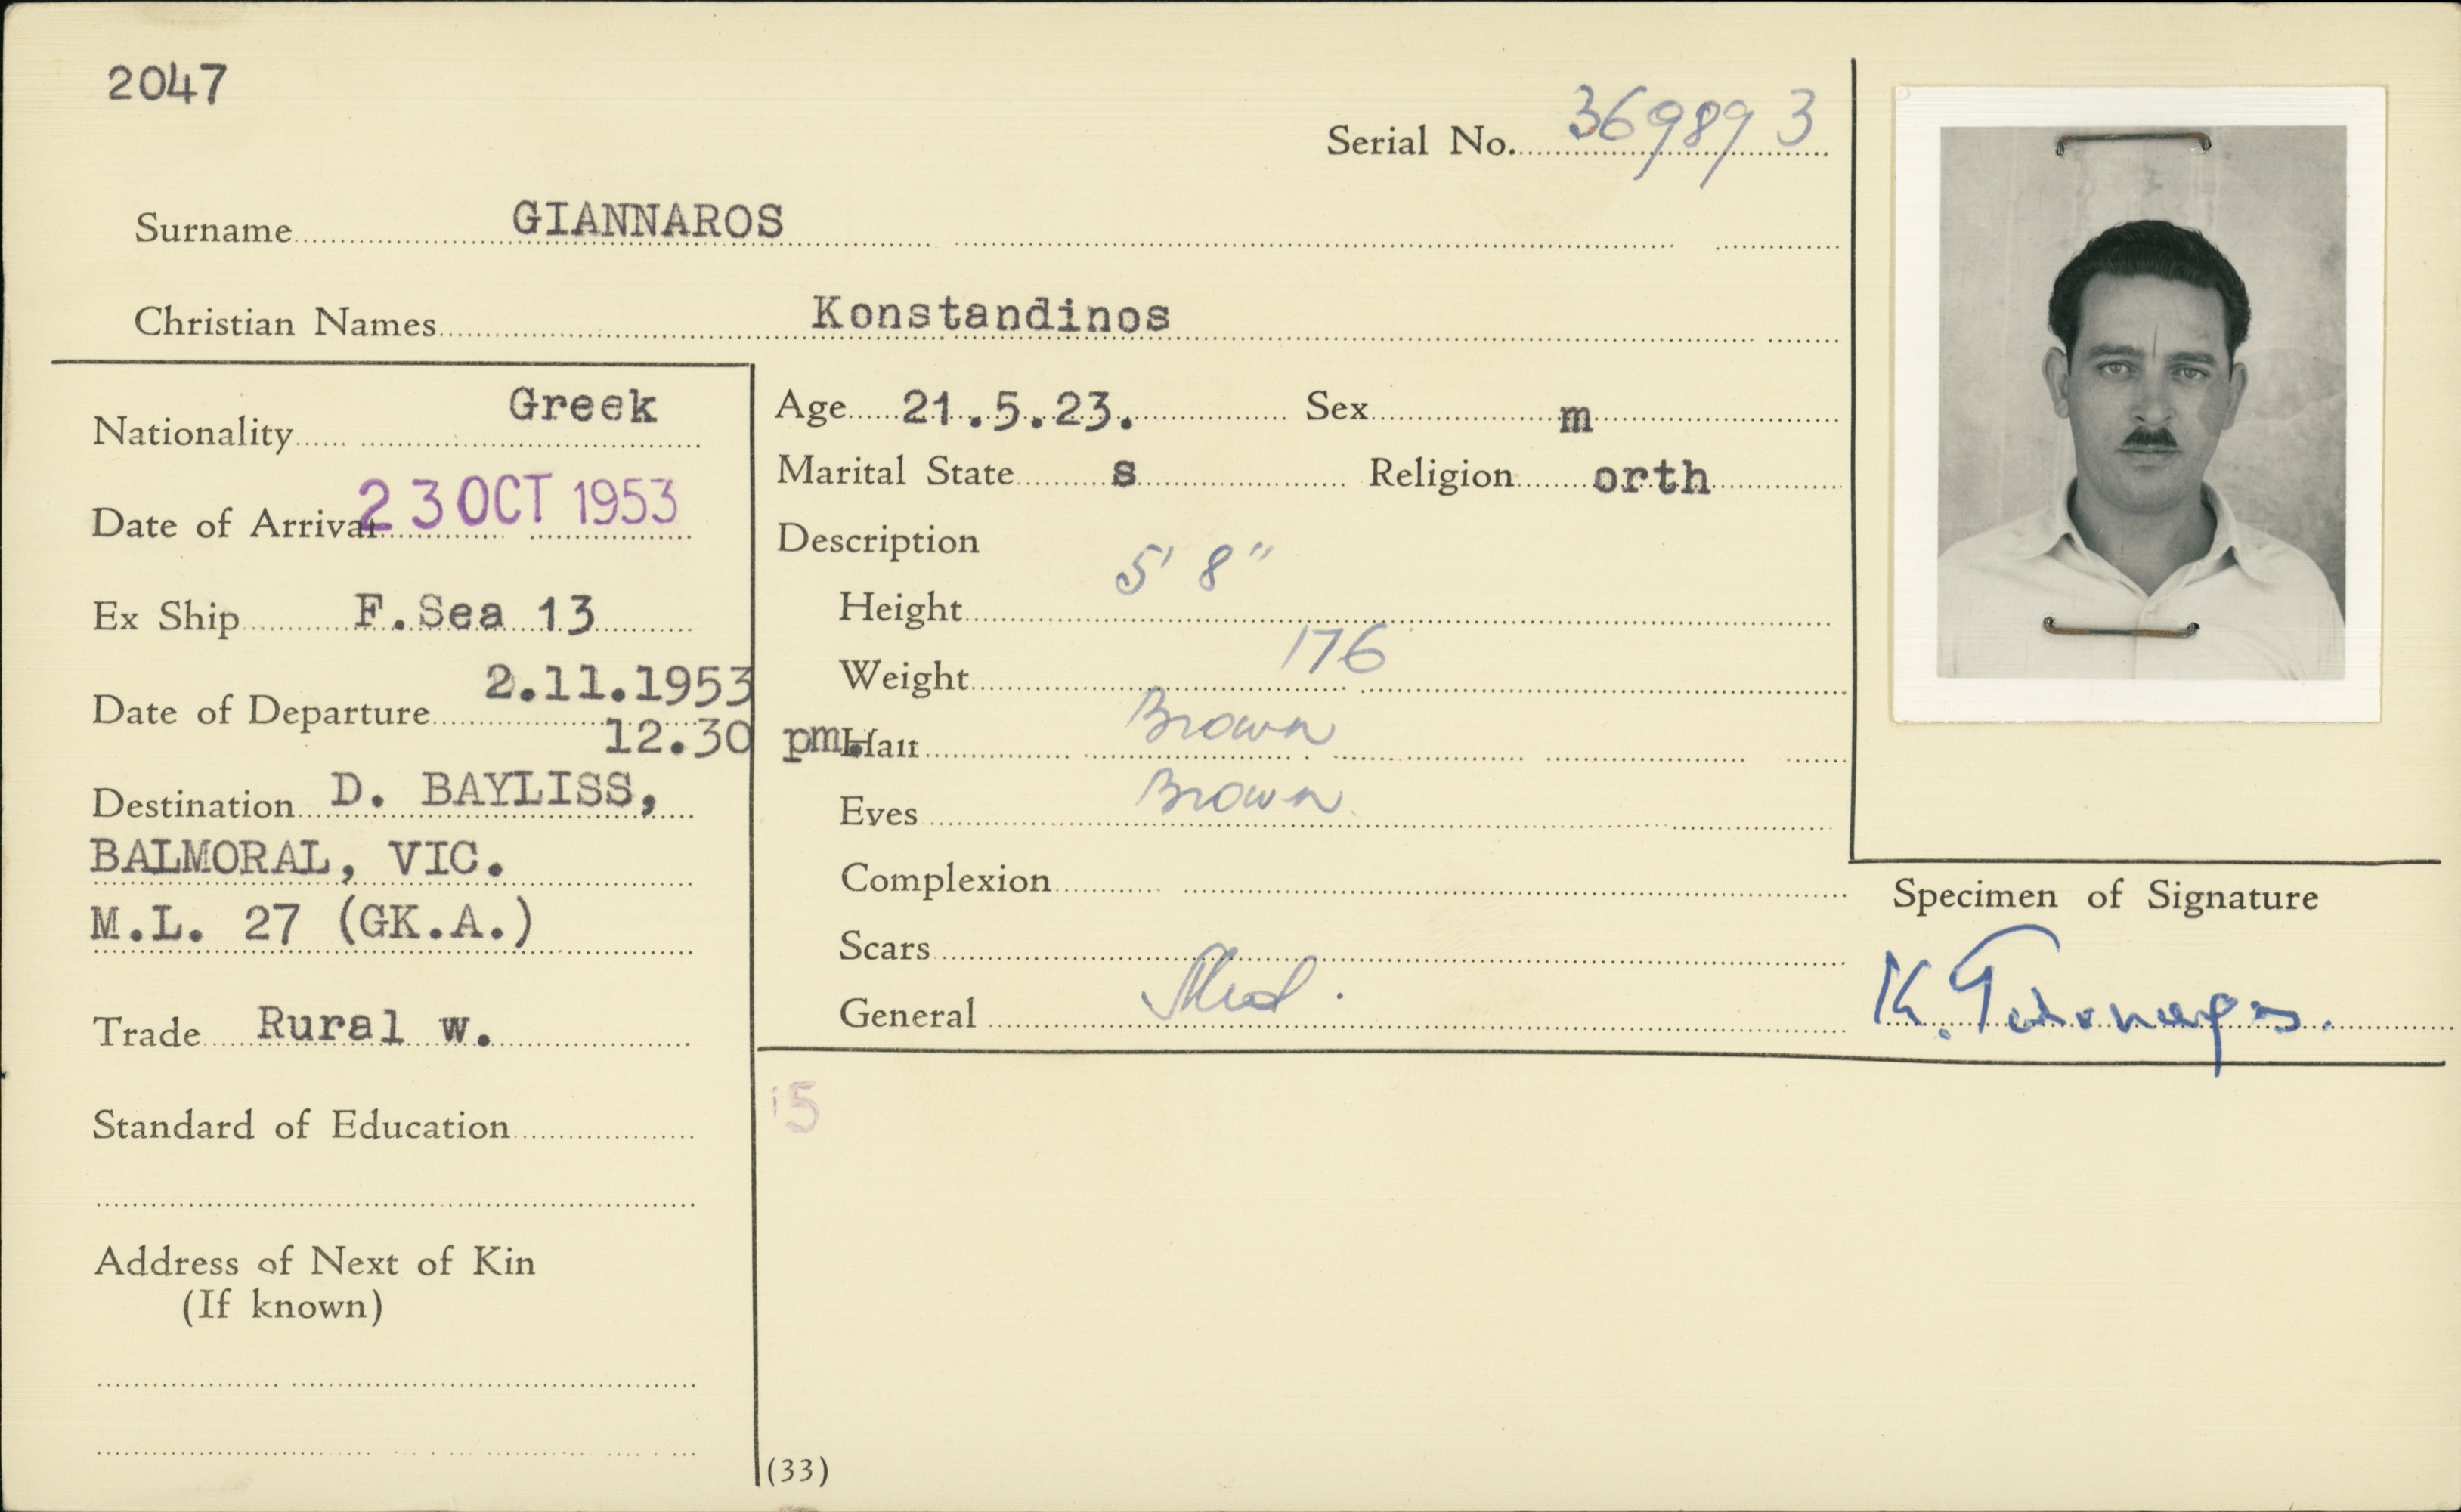 2047
Serial No. 369893
Surname GIANNAROS
Christian Names Konstandinos
Nationality Greek
Date of Arrival 23 OCT 1953
Ex Ship F.Sea 13
Date of Departure 2.11.1953
12.30 pm.
Destination D. BAYLISS,
BALMORAL, VIC.
M.L. 27 (GK.A.)
Trade Rural w.
Standard of Education
Address of Next of Kin
(If known)
Age 21.5.23. Sex m
Marital State s Religion orth
Description
Height 5' 8"
Weight 176
Hair Brown
Eyes Brown
Complexion
Scars
General Med.
15
(33)
Specimen of Signature
K.